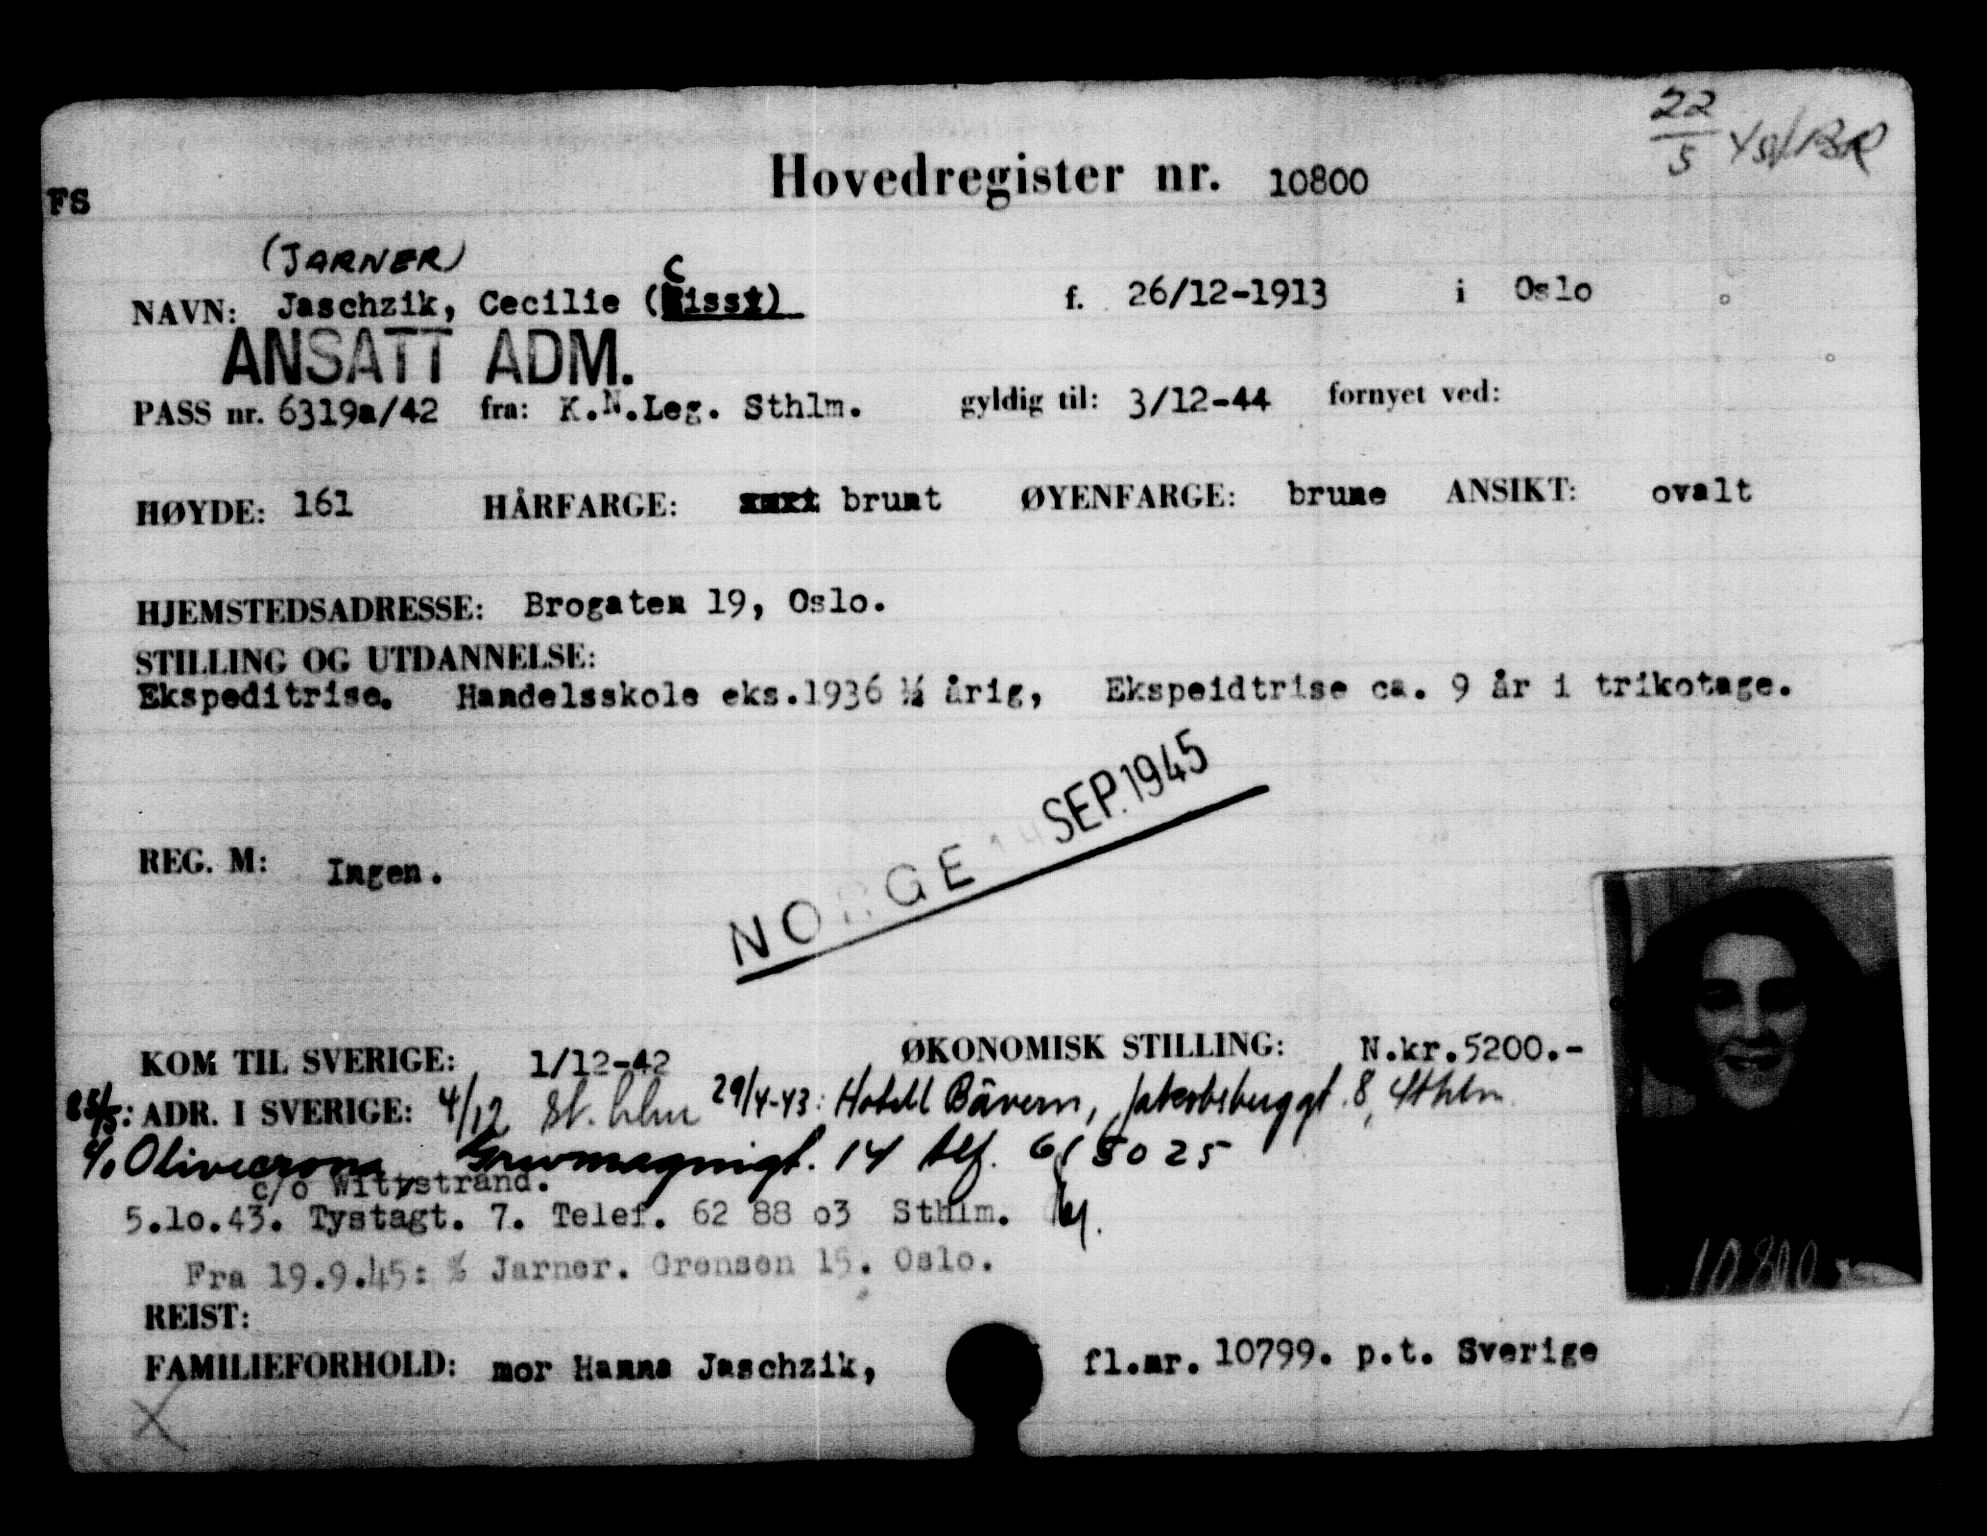 22/5
Hovedregister nr. 10800
FS
(JARNER)
C
NAVN: Jaschzik, Cecilie (Cissi) f. 26/12-1913 i Oslo
ANSATT ADM.
PASS nr. 6319a/42 fra: K.N.Leg. Sthlm. gyldig til: 3/12-44 fornyet ved:
HØYDE: 161 HÅRFARGE: brunt ØYENFARGE: brune ANSIKT: ovalt
HJEMSTEDSADRESSE: Brogaten 19, Oslo.
STILLING OG UTDANNELSE:
Ekspeditrise. Handelsskole eks.1936 ½ årig, Ekspeidtrise ca. 9 år i trikotage.
NORGE 14 SEP. 1945
REG. M: Ingen.
KOM TIL SVERIGE: 1/12-42 ØKONOMISK STILLING: N.kr.5200.-
25/5: ADR. I SVERIGE: 4/12 St. hlm 29/4-43: Hotell Bävern, Jakobsbergsgt. 8, Sthlm
c/o Olivecrona Grevmagnigt. 14 tlf. 615025
c/o Wittstrand.
5.10.43. Tystagt. 7. Telef. 62 88 03 Sthlm.
Fra 19.9.45: % Jarner. Grensen 15. Oslo.
10800
REIST:
FAMILIEFORHOLD: mor Hanna Jaschzik, fl.nr. 10799. p.t. Sverige
X